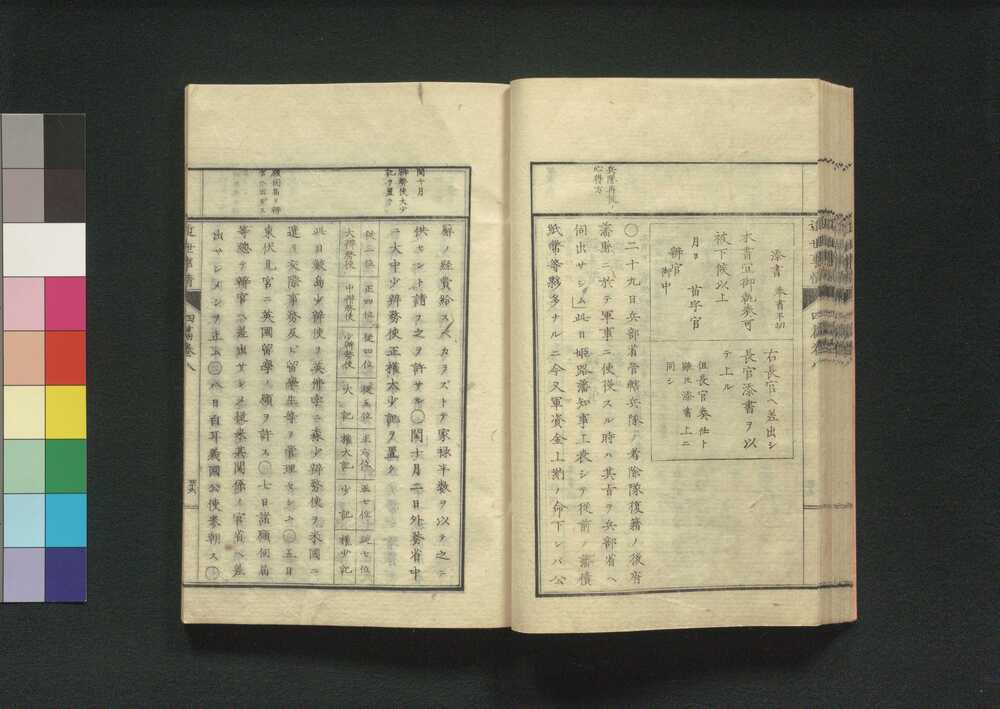 添書 奉書半切
本書宜御執奏可
被下候以上
月日 苗字官
辨官
御中
右長官ヘ差出シ
長官添書ヲ以
テ上ル
但長官奏任ト
雖モ添書上ニ
同シ
兵隊再役ノ
心得方
〇二十九日兵部省管轄兵隊ノ者除隊復籍ノ後府
藩縣ニ於テ軍事ニ使役スル時ハ其旨ヲ兵部省ヘ
伺出サシム」此日姫路藩知事上表シテ従前ノ藩債
紙幣等夥多ナルニ今又軍資金上納ノ命下レバ公
閏十月
辨務使大少
記ヲ置ク
廨ノ経費給スヘカラズトテ家禄半数ヲ以テ之ニ
供セント請フ之ヲ許サル〇閏十月二日外務省中
ニ大中少辨務使正權大少記ヲ置ク
從三位 正四位 從四位 從五位 正六位 正七位 從七位
大辨務使 中辨務使 少辨務使 大記 權大記 少記 權少記
此日鮫島少辨務使ヲ英佛孛ニ森少辨務使ヲ米國ニ
遣リ交際事務及ビ留學生等ヲ管理セシム〇五日
東伏見宮ニ英國留學ノ願ヲ許ス〇七日諸願伺届
等總テ辨官ヘ差出サシメ從来其関係ノ官省ヘ差
出サシメシヲ止ム〇八日白耳義國公使参朝ス〇
四篇巻八